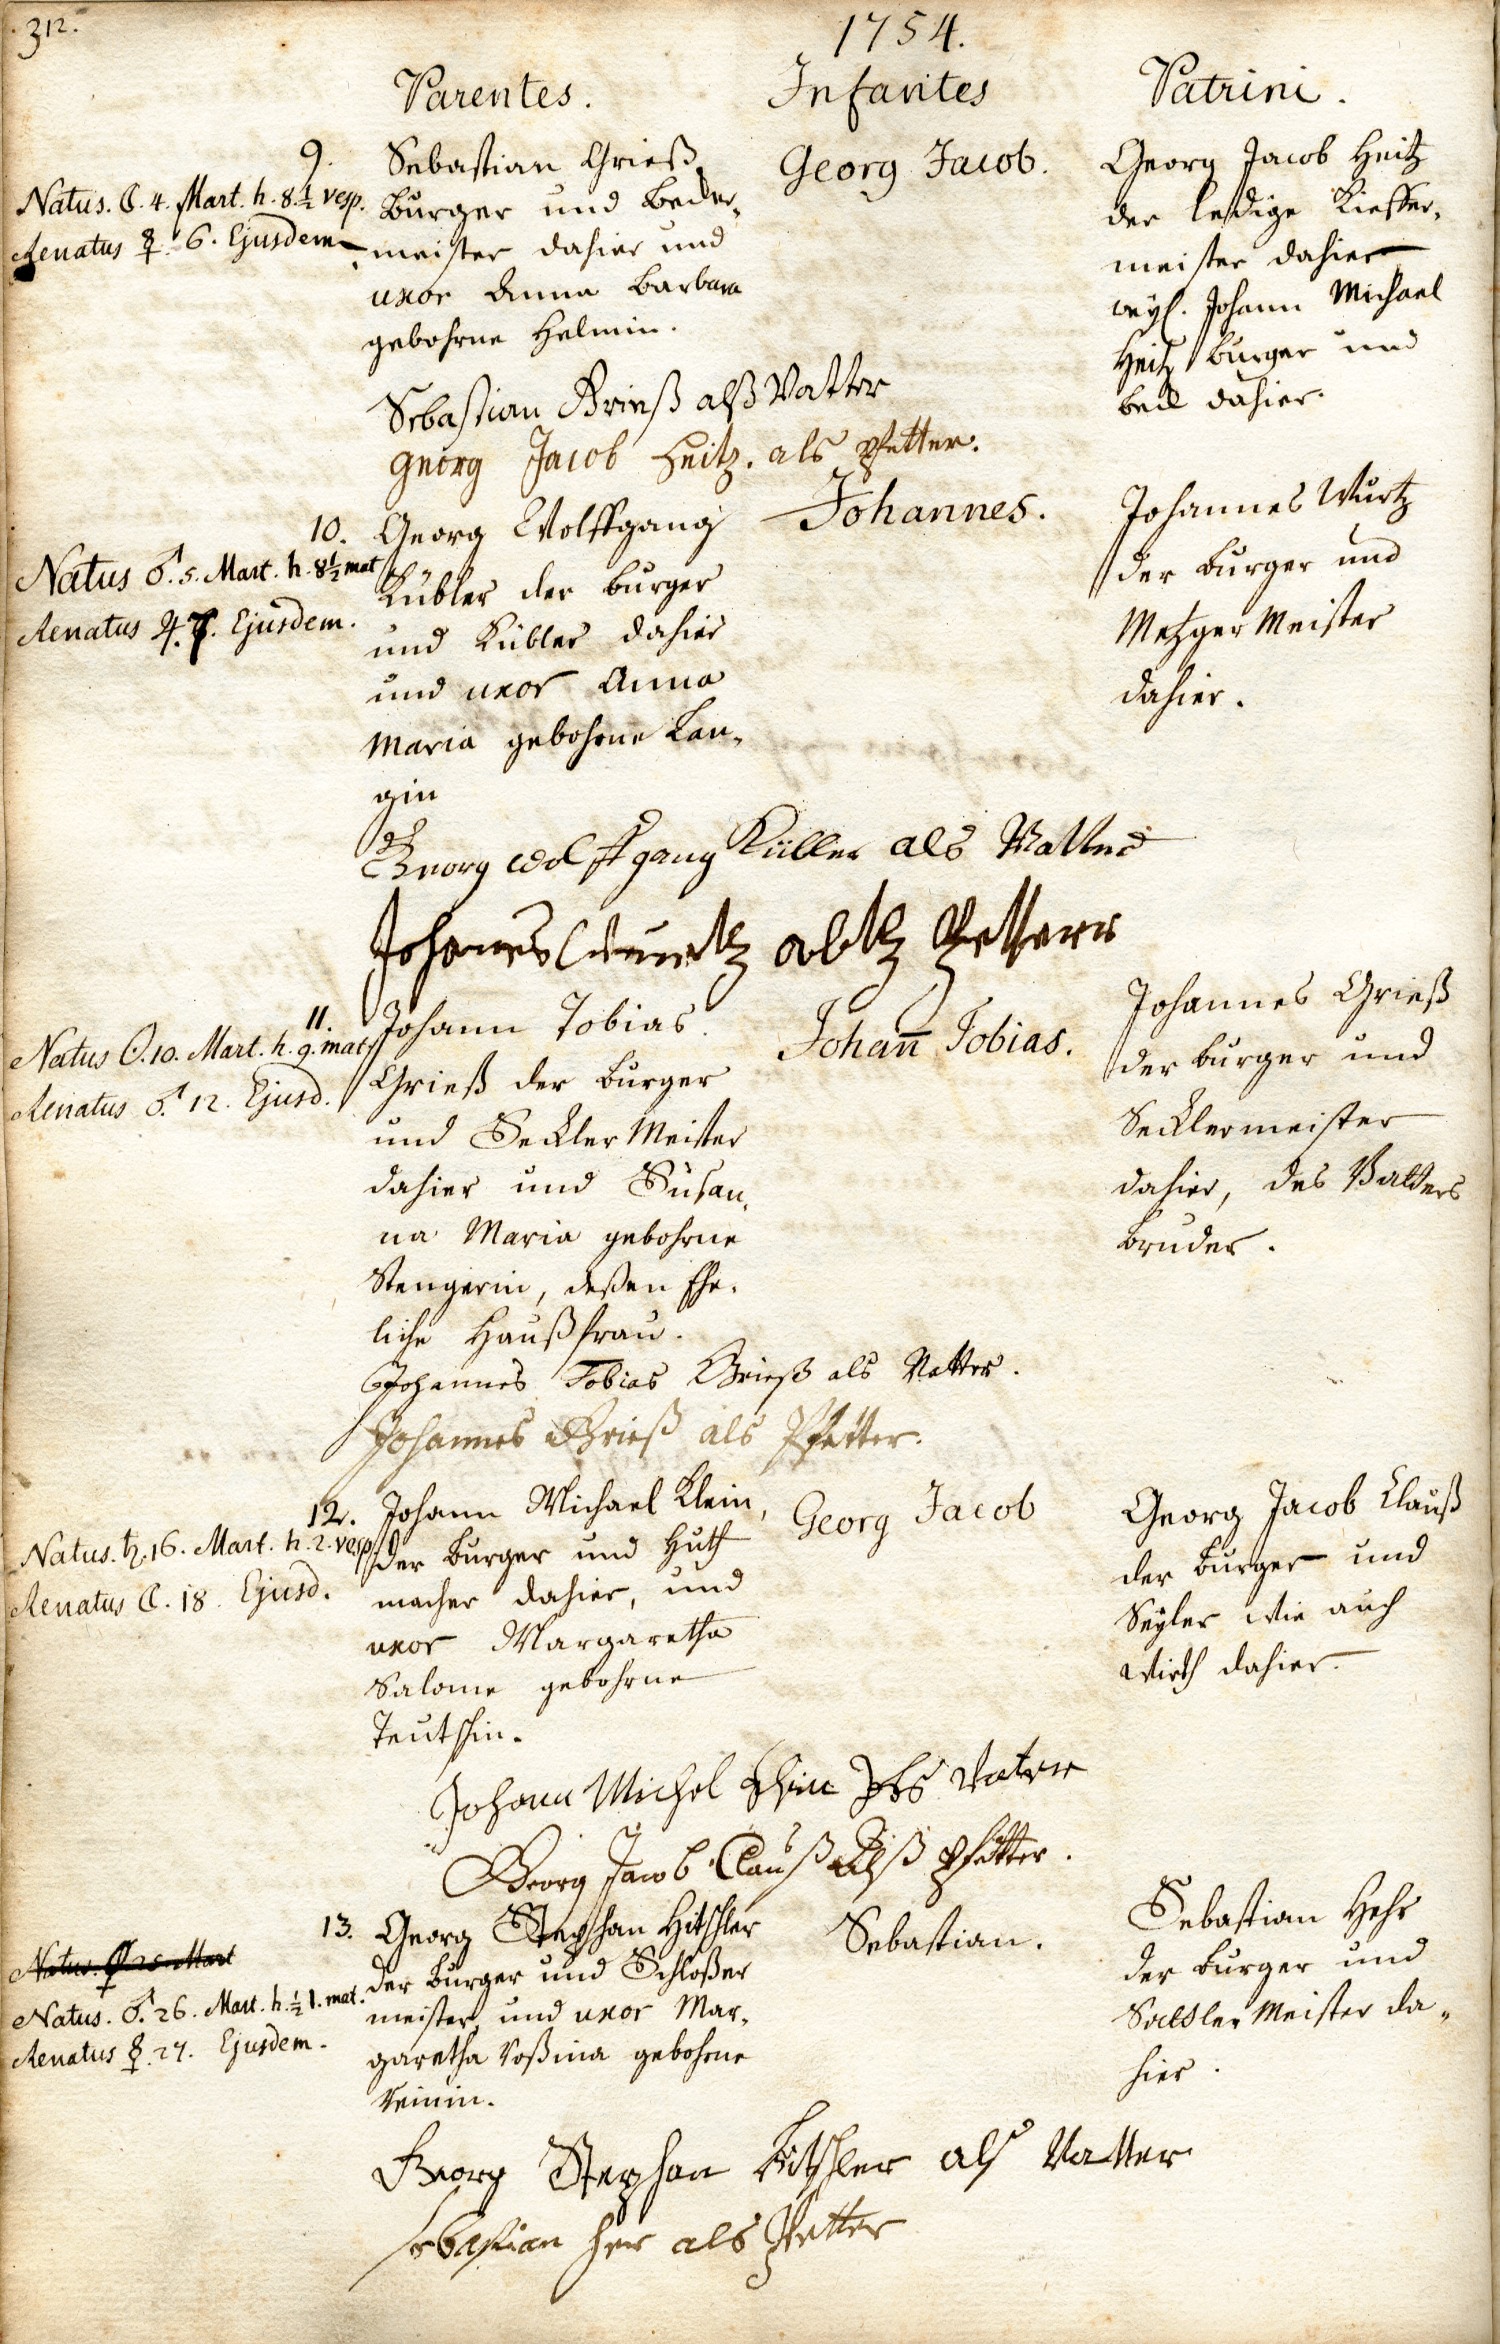 312.
1754.
Parentes. Infantes Patrini.
9.
Natus. ☾. 4. Mart. h. 8.½ vesp.
Renatus ☿. 6. Ejusdem
Sebastian Grieß
Burger und Becker,
meister dahier und
uxor Anna Barbara
gebohrne Helmin.
Georg Jacob.
Georg Jacob Heitz
der ledige Kieffer,
meister dahier
weyl. Johann Michael
Heitz burger und
beck dahier.
Sebastian Grieß alß Vatter
Georg Jacob Heitz. als Pfetter.
10.
Natus ♂. 5. Mart. h. 8½ mat
Renatus ♃. 7. Ejusdem.
Georg Wolffgang
Kübler der burger
und Kübler dahier
und uxor Anna
Maria gebohrne Lan,
gin
Johannes.
Johannes Wurtz
der burger und
Metzger Meister
dahier.
Georg wolffgang Kübler als Vatter
Johanes Wurtz alß Petterr
11.
Natus ☉. 10. Mart. h. 9. mat
Renatus ♂. 12. Ejusd.
Johann Tobias
Grieß der burger
und Seckler Meister
dahier und Susan,
na Maria gebohrne
Stengerin, deßen Ehe,
liche Haußfrau.
Johan̅ Tobias.
Johannes Grieß
der burger und
Secklermeister
dahier, des Vatters
bruder.
Johannes Tobias Grieß als Vatter.
Johannes Grieß als Pfetter.
12.
Natus. ♄. 16. Mart. h. 2. vesp
Renatus ☾. 18. Ejusd.
Johann Michael Klein,
der burger und Huth
macher dahier, und
uxor Margaretha
Salome gebohrne
Teutschin.
Georg Jacob
Georg Jacob Clauß
der burger und
Seyler wie auch
Wirth dahier.
Johann Michel Klein als Vater
Georg Jacob Clauß Alß Pfetter.
13.
Natus. ☿ 25 Mart
Natus. ♂. 26. Mart. h. ½ 1. mat.
Renatus ☿. 27. Ejusdem.
Georg Stephan Hitschler
der burger und Schloßer
meister, und uxor Mar,
garetha Roßina gebohrne
Reinin.
Sebastian.
Sebastian Hehr
der burger und
Sattler Meister da,,
hier.
Georg Stephan Hitschler als Vatter
sebastian her als Pfetter